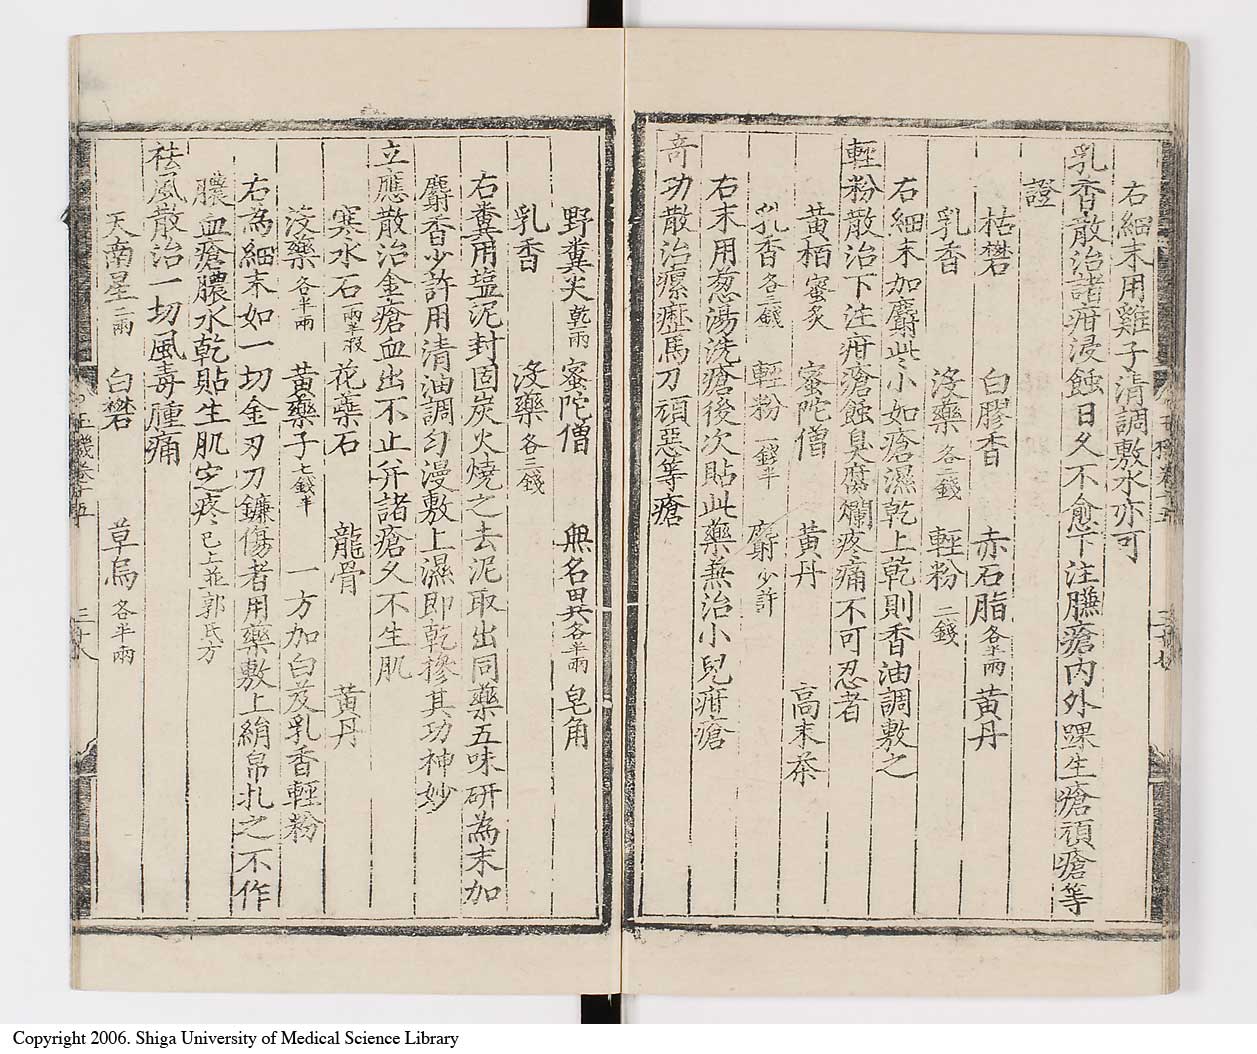 右細末用雞子清調敷水亦可
乳香散治諸疳浸蝕日久不愈下注臁瘡內外踝生瘡頑瘡等
證
枯礬 白膠香 赤石脂各半兩 黃丹
乳香 沒藥各三錢 輕粉二錢
右細末加麝些小如瘡濕乾上乾則香油調敷之
輕粉散治下注疳瘡蝕臭腐爛疼痛不可忍者
黃栢蜜炙 蜜陀僧 黃丹 高末茶
乳香各三錢 輕粉一錢半 麝少許
右末用葱湯洗瘡後次貼此藥兼治小兒疳瘡
奇功散治瘰癧馬刀頑惡等瘡
野糞尖乾一兩 蜜陀僧 無名異各半兩 皂角
乳香 沒藥各三錢
右糞用塩泥封固炭火燒之去泥取出同藥五味研為末加
麝香少許用清油調勻漫敷上濕即乾摻其功神妙
立應散治金瘡血出不止并諸瘡久不生肌
寒水石兩半煆 花蘂石 龍骨 黃丹
沒藥各半兩 黃藥子七錢半 一方加白芨乳香輕粉
右為細末如一切金刃刀鐮傷者用藥敷上絹帛扎之不作
膿血瘡膿水乾貼生肌定疼已上並郭氏方
祛風散治一切風毒腫痛
天南星二兩 白礬 草烏各半兩
Copyright 2006. Shiga University of Medical Science Library